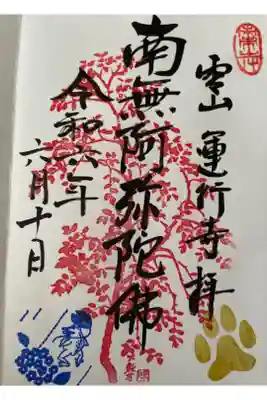 山 運行寺 拝
南無阿弥陀佛
令和六年
六月十日